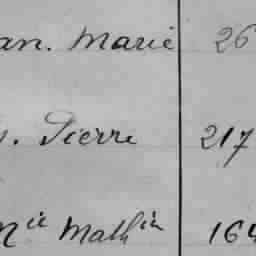 an. Marie 26
. Pierre 217
Mie Mathin 164